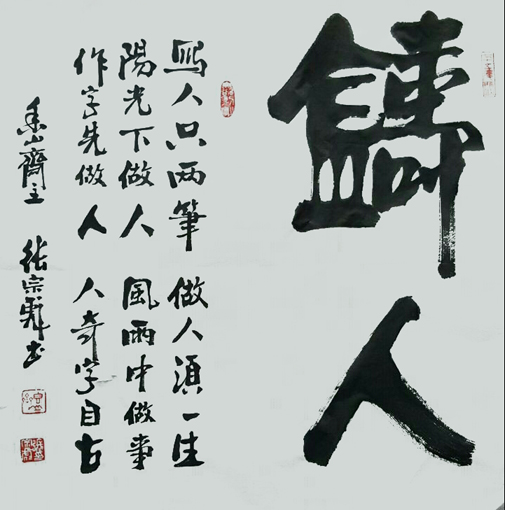 鑄人
寫人只兩筆 做人須一生
陽光下做人 風雨中做事
作字先做人 人奇字自古
山齋主 張宗書